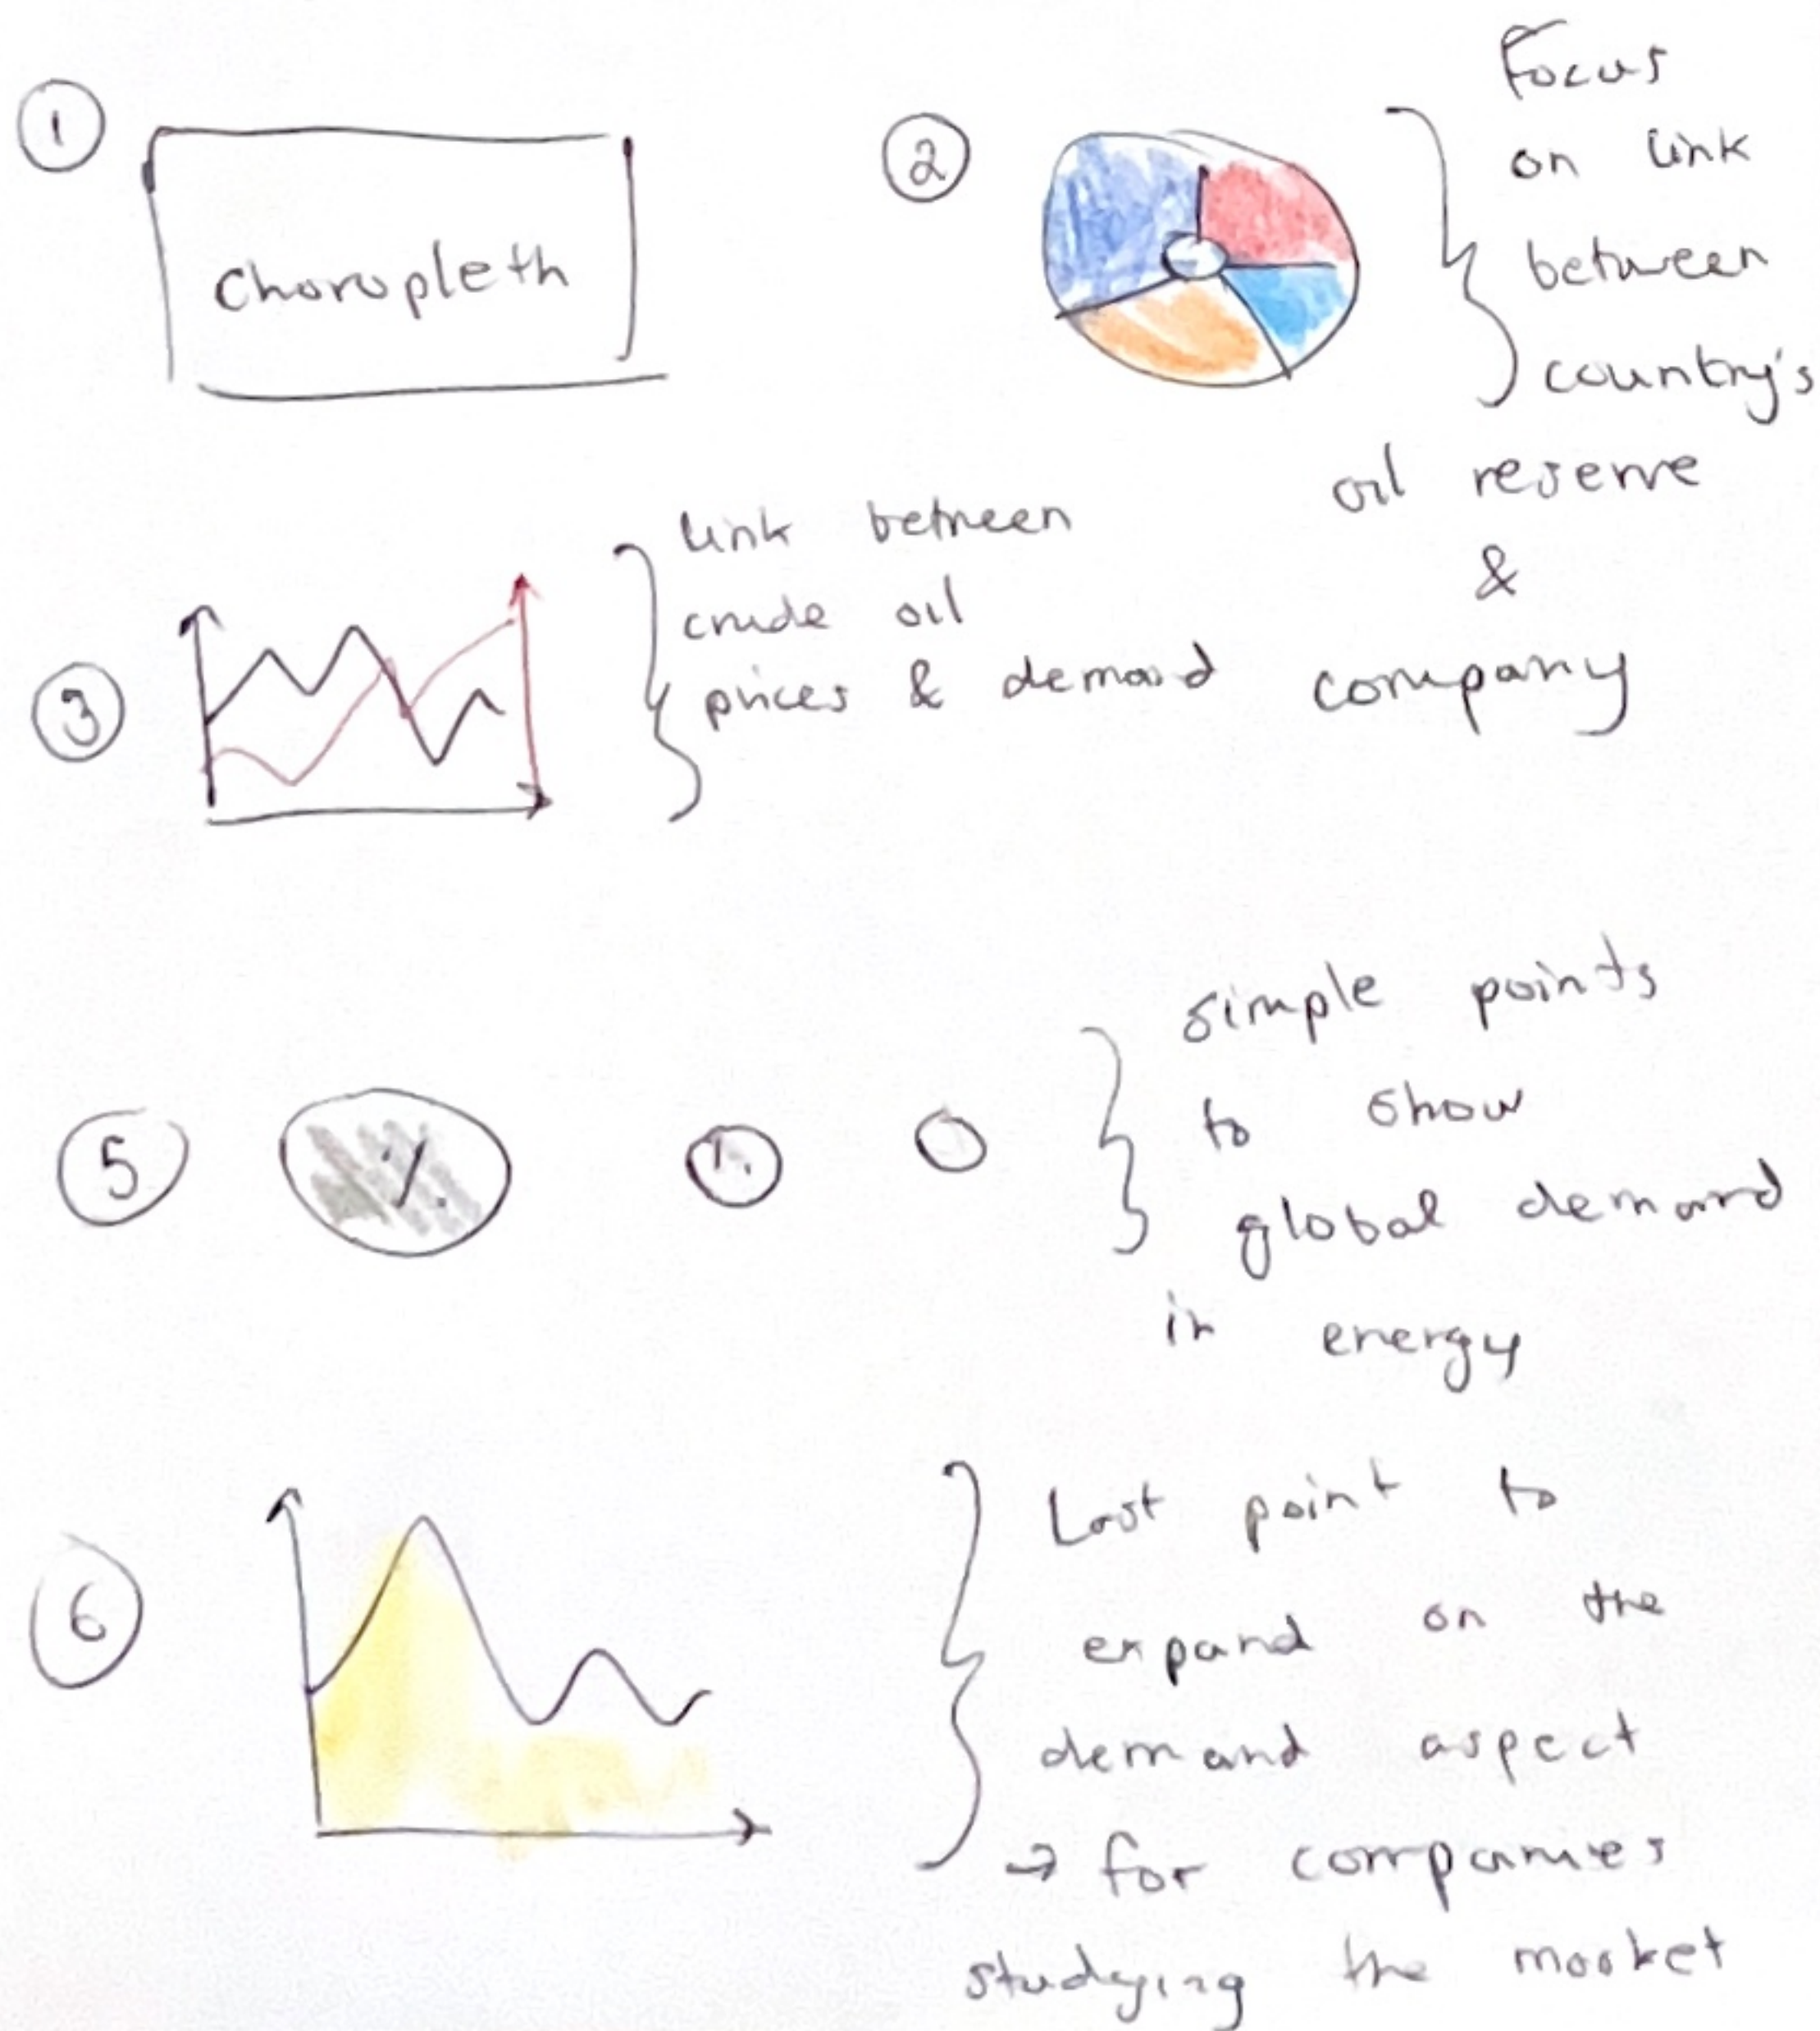 1
Choropleth
2
Focus
on link
between
country's
oil reserve
&
company
3
link between
crude oil
prices & demand
5
%
simple points
to show
global demand
in energy
6
Last point to
expand on the
demand aspect
→ for companies
studying the market